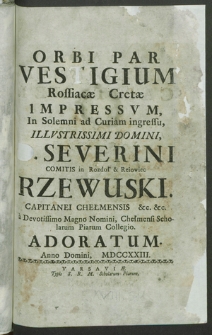 ORBI PAR
VESTIGIUM
Rossiacæ Cretæ
IMPRESSVM,
In Solemni ad Curiam ingressu,
ILLVSTRISSIMI DOMINI,
. SEVERINI
COMITIS in Rozdoł &
RZEWUSKI.
CAPITANEI CHELMENSIS &c. &c.
à Devotissimo Magno Nomini, Chelmensi Scho-
larum Piarum Collegio.
ADORATUM.
Anno Domini, MDCCXXIII.
VARSAVIÆ,
Typis S. R. M. Scholarum Piarum.